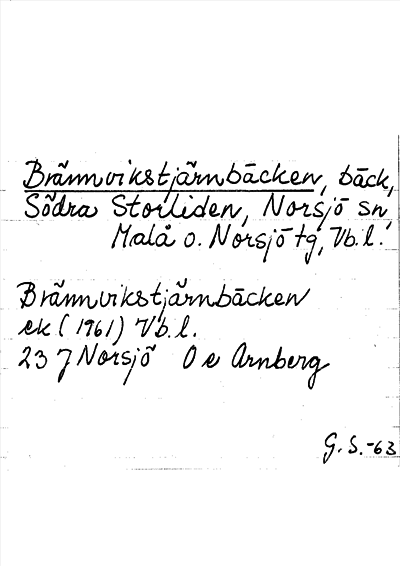 Brännvikstjärnbäcken, bäck,
Södra Storliden, Norsjö sn,
Malå o. Norsjö tg, Vb.l.
Brännvikstjärnbäcken
ek (1961) Vb.l.
23 J Norsjö O e Arnberg
G. S. -63